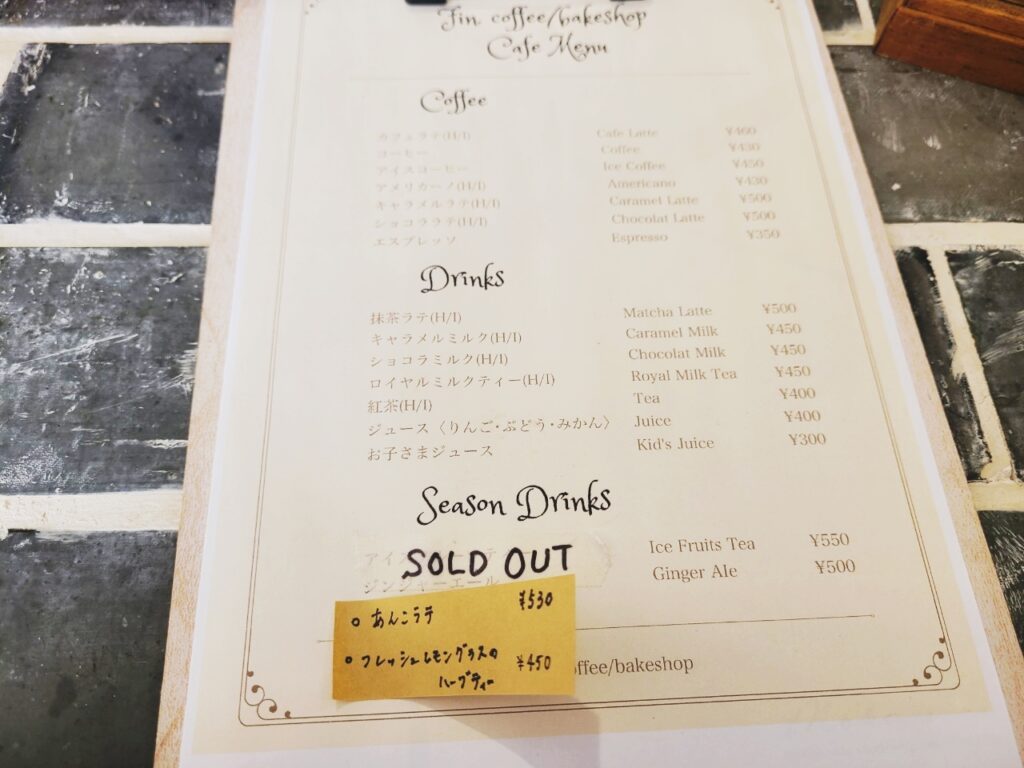 Fin coffee/bakeshop
Cafe Menu
Coffee
カフェラテ(H/I) Cafe Latte ¥460
コーヒー Coffee ¥430
アイスコーヒー Ice Coffee ¥450
アメリカーノ(H/I) Americano ¥430
キャラメルラテ(H/I) Caramel Latte ¥500
ショコララテ(H/I) Chocolat Latte ¥500
エスプレッソ Espresso ¥350
Drinks
抹茶ラテ(H/I) Matcha Latte ¥500
キャラメルミルク(H/I) Caramel Milk ¥450
ショコラミルク(H/I) Chocolat Milk ¥450
ロイヤルミルクティー(H/I) Royal Milk Tea ¥450
紅茶(H/I) Tea ¥400
ジュース〈りんご・ぶどう・みかん〉 Juice ¥400
お子さまジュース Kid's Juice ¥300
Season Drinks
アイス Ice Fruits Tea ¥550
SOLD OUT
ジンジャーエール Ginger Ale ¥500
あんこラテ ¥530
フレッシュレモングラスの
ハーブティー ¥450
offee/bakeshop